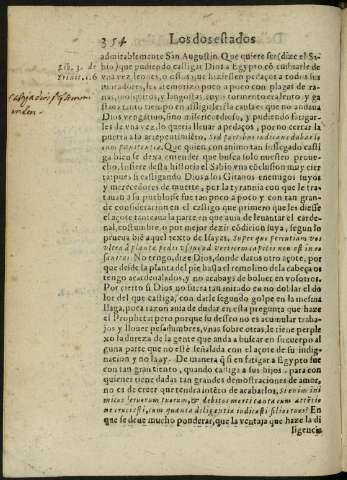 354
Los dos estados
admirablemente San Augustin. Que quiere ser (dize el Sa-
bio) que pudiendo castigar Dios a Egypto cõ embiarle de
una vez leones, o ossos que hiziessen pedaços a todos sus
moradores, les atemorizo poco a poco con plagas de ra-
nas, mosquitos, y langostas, cuyo tormento era lento, y ga
stava tanto tiempo en affligirles? la causa es que no andava
Dios vengativo, sino misericordioso, y pudiendo fatigar-
les de una vez, lo queria llevar a pedaços, por no cerrar la
puerta a su arrepentimiento. Sed partibus iudicans dabas lo-
cum pœnitentiæ. Que quien con animo tan sossegado casti
ga bien se dexa entender que busca solo nuestro prove-
cho. Infiere desta historia el Sabio una cõclusion muy cier
ta: pues si castigando Dios a los Gitanos enemigos suyos
y merecedores de muerte, por la tyrannia con que le tra-
tavan a su pueblo, se fue tan poco a poco, y con tan gran-
de consideracion en el castigo que primero que les diesse
el açote tanteava la parte en que avia de levantar el carde-
nal, costumbre, o por mejor dezir cõdicion suya, segun lo
prueva biẽ aquel texto de Isayas, Super quo percutiam vos
ultra à planta pedis usque ad verticem capitis non est in eo
sanitas. No tengo, dize Dios, donde daros otro açote, por
que desde la planta del pie hasta el remolino de la cabeça os
tengo acardenalados, y no acabays de bolver en vosotros.
Por cierto si Dios no fuera tan mirado en no doblar el do
lor del que castiga, con darle segundo golpe en la mesma
llaga, poca razon avia de dudar en esta pregunta que haze
el Propheta: pero porque su desseo no es acumular traba-
jos y llover pesadumbres, unas sobre otras, le tiene perple
xo la dureza de la gente que anda a buscar en su cuerpo al
guna parte que no estè señalada con el açote de su indig-
nacion y no la ay. De manera q̃ si en fatigar a Egypto fue
con tan gran tiento, quando castiga a sus hijos, para con
quienes tiene dadas tan grandes demostraciones de amor,
no es de creer que tendra intẽto de acabarlos. Si enim ini
micos servorum tuorum, & debitos morti tanta cum attẽtio
ne cruciasti, cum quanta diligentia iudicasti filios tuos? En
que se deve mucho ponderar, que la ventaja que haze la di
ligencia